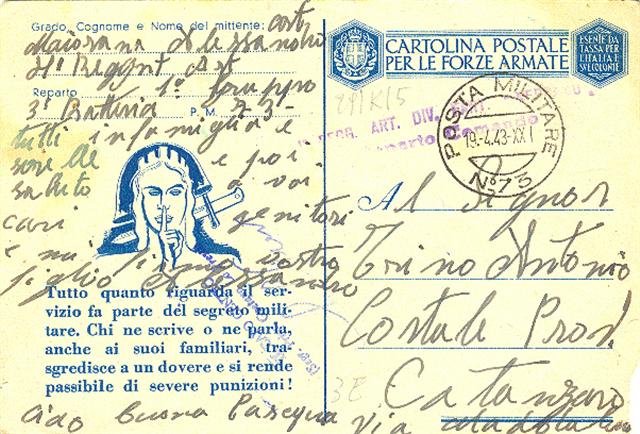 Grado, Cognome e Nome del mittente: cort
Maiorana Alessandro
41° Reggt Art
Reparto 1° Gruppo
3° Batteria P. M. 73
tutti in famiglia e
sorelle e poi
saluto a voi
cari genitori
e mi firmo vostro
figlio Alessandro
Tutto quanto riguarda il ser-
vizio fa parte del segreto mili-
tare. Chi ne scrive o ne parla,
anche ai suoi familiari, tra-
sgredisce a un dovere e si rende
passibile di severe punizioni!
Ciao Buona Pasqua
CARTOLINA POSTALE
PER LE FORZE ARMATE
ESENTE DA
TASSA PER
L'ITALIA E
SVE COLONIE
REGG. ART. DIV.
Reparto Comando
POSTA MILITARE
19.-4.43-XXI
N° 73
Al Signor
Trino Antonio
Cortale Prov.
Catanzaro
Via